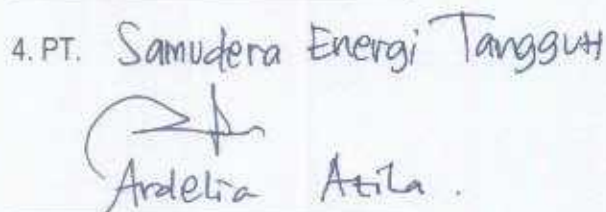 4. PT. Samudera Energi Tangguh
Ardelia Azila.